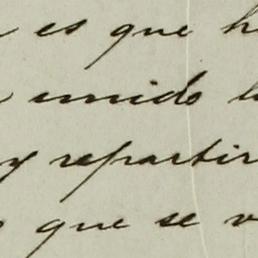 es que h
unido l
y repartir
que se v